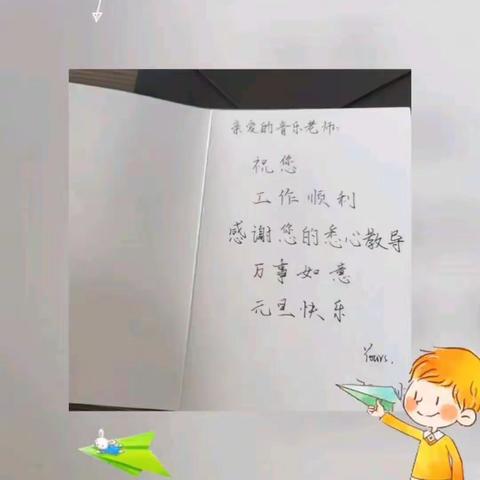 亲爱的音乐老师:
祝您
工作顺利
感谢您的悉心教导
万事如意
元旦快乐
Yours.